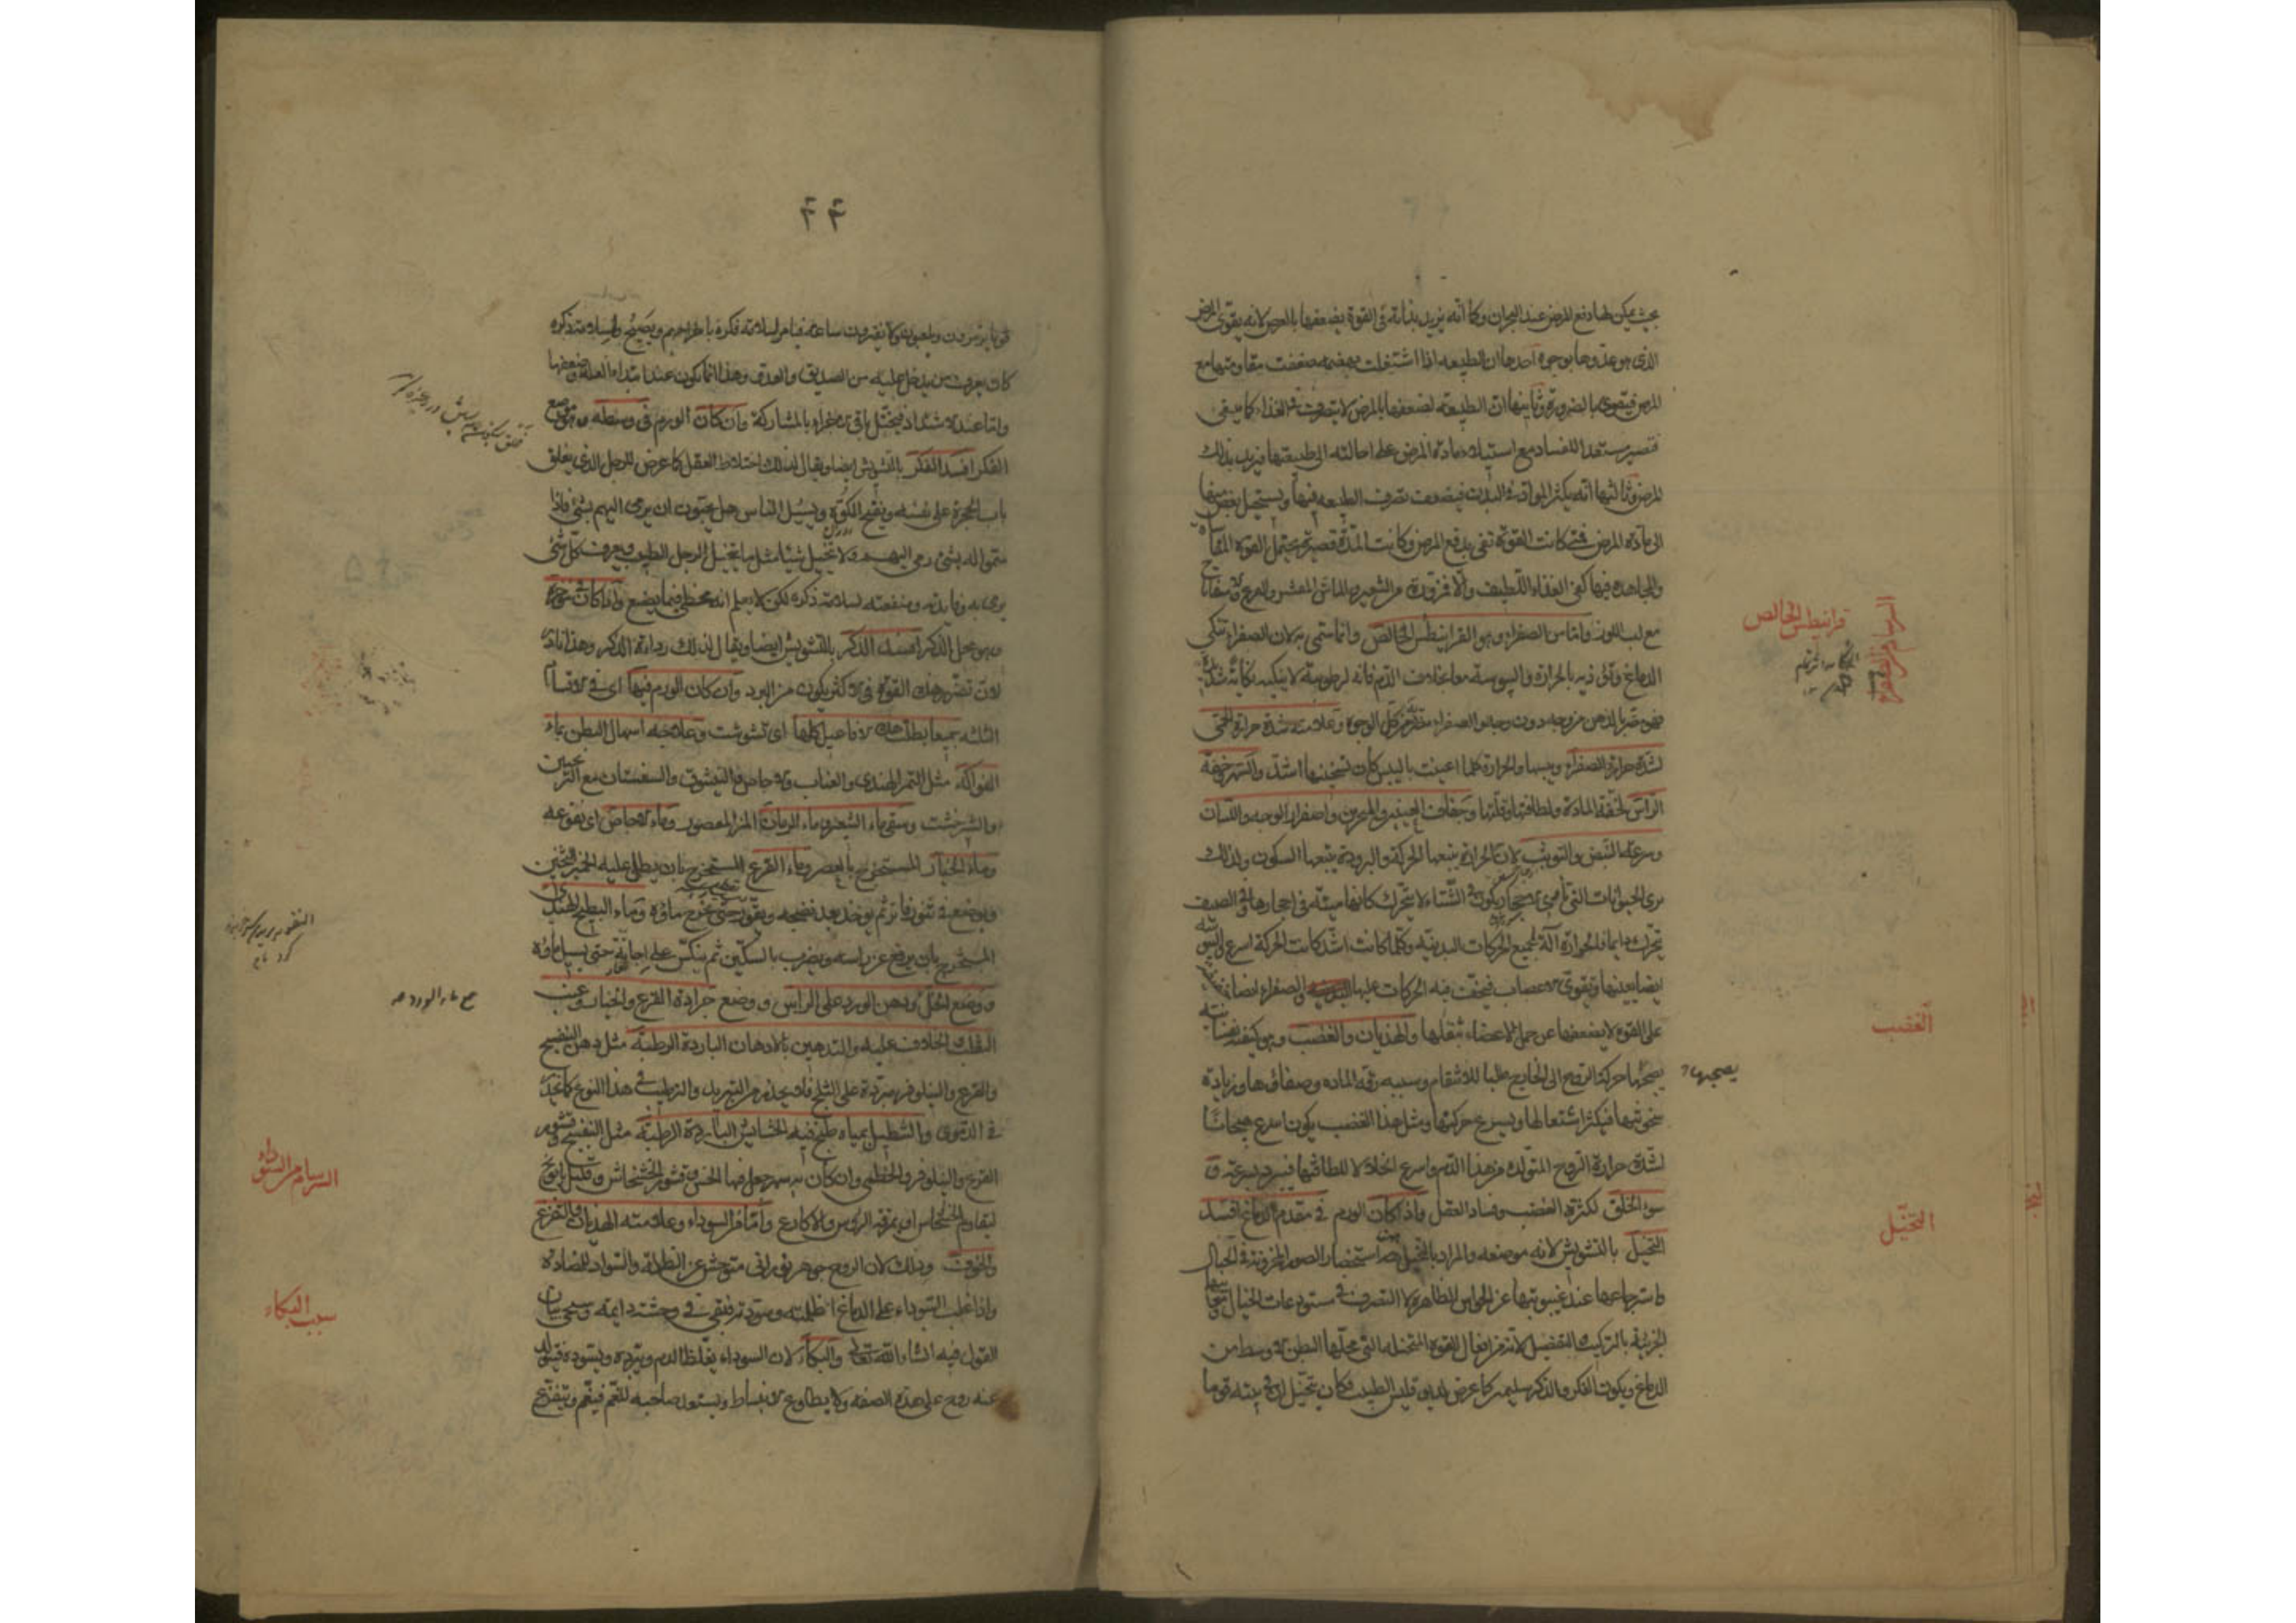 بحيث يمكن لها دفع المرض عند البحران وكما انه يزيد بذاته في القوة يضعفها بالعرض لانه يقوى المرض
الذى هو عدوها بوجوه احدها ان الطبيعه اذا اشتغلت بهضمه ضعفت مقاومتها مع
المرض فيقوى بالضرورة وثانيها ان الطبيعه لضعفها بالمرض لا يتصرف في الغذاء كما ينبغى
فتصير مستعدا للفساد مع استيلاء مادة المرض على احالته الى طبيعتها فيزيد بذلك
المرض وثالثها انه يكثر المواد في البدن فيضعف تصرف الطبيعه فيها ويستحيل بعض منها
الى مادة المرض فمتى كانت القوة تفى بدفع المرض وكانت المدة قصيرة يحتمل القوة المقاساة
والمجاهده فيها كفى الغذاء اللطيف والا فزورة من الشعير والماش المقشر والقرع والاسفاناخ
مع لب اللوز واما من الصفراء وهو القرانيطس الخالص وانما سمى به لان الصفراء تنكى
الدماغ وتؤذيه بالحرارة واليبوسة معا بخلاف الدم فانه لرطوبته لا ينكيه نكاية شديدة
فهو مضر بالذهن من وجه دون وجه والصفراء مضرة من كل الوجوه وعلامته شدة حرارة الحمى
لشدة حرارة الصفراء ويبسها والحرارة كلما اعينت باليبس كان تسخينها اشد والسهر وخفة
الراس لخفة المادة ولطافتها وقلتها وجفاف العينين والمنخرين واصفرار الوجه واللسان
وسرعة النبض والتوثب لان الحرارة يتبعها الحركة والبرودة يتبعها السكون ولذلك
يرى الحيوانات التى تأوى في الشتاء لا يتحرك كانها ميتة في احجارها وفي الصيف
يتحرك دايما فالحرارة آلة لجميع الحركات البدنيه وكلما كانت اشد كانت الحركة اسرع واليبوسة
ايضا يعينها وتقوى الاعصاب فيخف فيه الحركات عليها والصفراء ايضا
على القوة لا يضعفها عن حمل الاعضاء بثقلها والهذيان والغضب وهو كيفية نفسانية
يصحبها حركة الروح الى الخارج طلبا للانتقام وسببه رقة المادة وصفاؤها وزيادة
سخونتها فيكثر اشتعالها ويسرع حركتها ومثل هذا الغضب يكون اسرع هيجانا
لشدة حرارة الروح المتولدة من هذا الدم واسرع انحلالا للطافتها فيبرد بسرعة و
سوء الخلق لكثرة الغضب وفساد العقل واذا كان الورم في مقدم الدماغ افسد
التخيل بالتشويش لانه موضعه والمراد بالتخيل هنا استحضار الصور المخزونة في الخيال
واسترجاعها عند غيبوبتها عن الحواس الظاهرة لا التصرف في مستودعات الخيال
الجزئية بالتركيب والتفصيل لانه من افعال القوة المتخيله التى محلها البطن الاوسط من
الدماغ ويكون الفكر والذكر سليمين كما عرض لجالينوس الطبيب فكان يتخيل ان في بيته قوما
السرسام من الصفراء
قرانيطس الخالص
الغضب
يصحبها
التخيل
٢٢
قوما يزمرون ويلعبون ولا يفترون ساعة فيأمر لسلامة فكره باخراجهم ويصيح ولسلامة ذكره
كان يعرف من يدخل عليه من الصديق والعدو وهذا انما يكون عند ابتداء العلة وضعفها
واما عند الاشتداد فيختل باقى الاجزاء بالمشاركة وان كان الورم في وسطه وهو موضع
الفكر افسد الفكر بالتشويش ايضا ويقال لذلك اختلاط العقل كما عرض للرجل الذى يغلق
باب الحجرة على نفسه ويفتح الكوة ويسئل الناس هل يحبون ان يرمى اليهم بشئ فاذا
سموا له بشئ رمى اليهم ولا تخيل شيئا مثل ما تخيل الرجل الطبيب ويعرف كل شئ
يرمى به وفايدته ومنفعته لسلامة ذكره لكن لا يعلم انه مخطئ فيما يصنع واذا كان في مؤخره
وهو محل الذكر افسد الذكر بالتشويش ايضا ويقال لذلك رداءة الذكر وهذا نادر
لان تضرر هذه القوة في الاكثر يكون من البرد وان كان الورم فيها اى في الاقسام
الثلثه جميعا بطلت هذه الافاعيل كلها اى تشوشت وعلاجه اسهال البطن بماء
الفواكه مثل التمر الهندى والعناب والاجاص والسفستان مع الترنجبين
والشيرخشت وسقى ماء الشعير وماء الرمان المز المعصور وماء الاجاص اى نقوعه
وماء الخيار المستخرج بالعصر وماء القرع المستخرج بان يطلى عليه الخمير الثخين
ويوضع في تنور فاتر ثم يوخذ بعد نضجه ويقور حتى يخرج ماؤه وماء البطيخ الهندى
المستخرج بان يرفع عن راسه ويضرب بالسكين ثم ينكس على اجانة حتى يسيل ماؤه
ووضع الخل ودهن الورد على الراس و وضع جرادة القرع والخيار وعنب
الثعلب والخلاف عليه والتدهين بالادهان الباردة الرطبة مثل دهن البنفسج
والقرع والنيلوفر مبردة على الثلج فلا يحذر من التبريد والترطيب في هذا النوع كما يحذر
في الدموى والتنطيل بمياه طبخ فيه الحشائش الباردة الرطبة مثل البنفسج وقشور
القرع والنيلوفر والخطمى وان كان به سهر جعل فيها الخس وقشور الخشخاش وقليل بابونج
ليقاوم الخشخاش او بمرقة الرؤس والاكارع واما من السوداء وعلامته الهذيان والتفزع
والخوف وذلك لان الروح جوهر نورانى متوحش عن الظلمة والسواد للمضادة
واذا غلب السوداء على الدماغ اظلمته وسودته فيبقى في وحشة دايمة وسيجى بيان
القول فيه انشاء الله تعالى والبكاء لان السوداء يغلظ الدم ويبرده ويسوده فيتولد
عنه روح على هذه الصفة ولا يطاوع الانبساط ويستعد صاحبه للغم فيغم ويتفزع
السرسام من السوداء
سبب البكاء